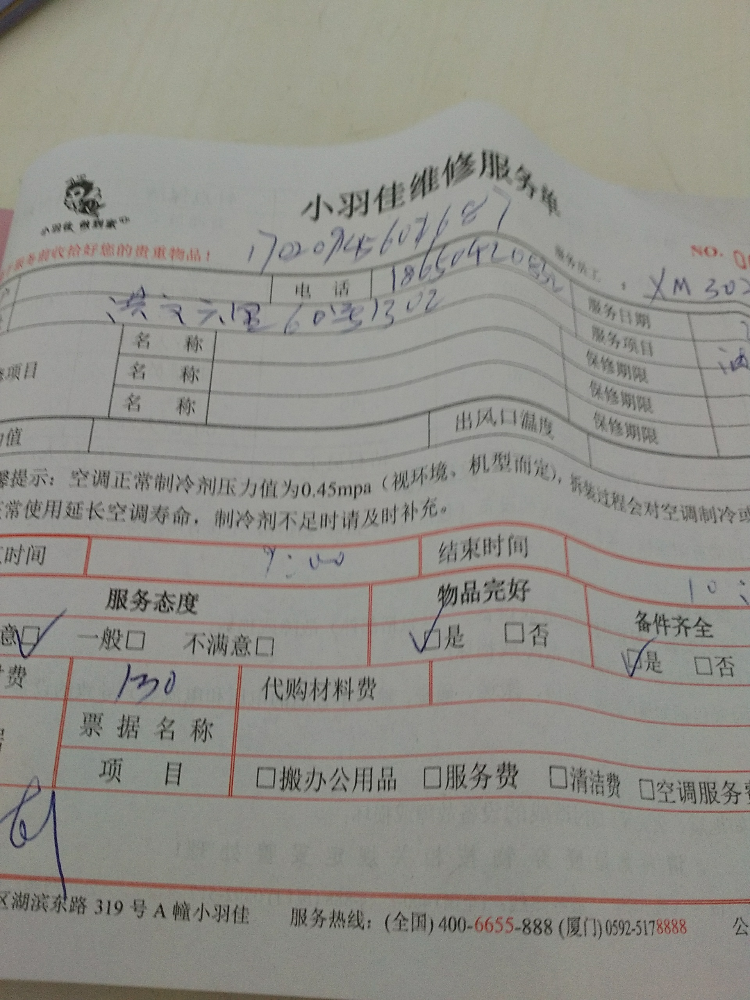 小羽佳维修服务单
小羽佳 做到家
服务前收拾好您的贵重物品！
NO.
服务员工： XM302
电 话
服务日期
洪文六里60号1302
服务项目
名 称
保修期限
项目
名 称
保修期限
名 称
保修期限
值
出风口温度
提示：空调正常制冷剂压力值为0.45mpa（视环境、机型而定），拆装过程会对空调制冷或
常使用延长空调寿命，制冷剂不足时请及时补充。
时间 9:00 结束时间 10:
服务态度 物品完好 备件齐全
意☑ 一般□ 不满意□ ☑是 □否 ☑是 □否
费 130 代购材料费
票据名称
项 目 □搬办公用品 □服务费 □清洁费 □空调服务费
区湖滨东路 319 号 A 幢小羽佳 服务热线：(全国) 400-6655-888 (厦门) 0592-5178888 公